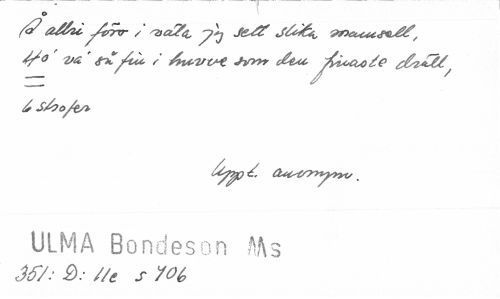 Å allri förr i vala jg sett slika mamsell,
Ho va' så fin i huvve som den finaste dräll,
=
6 strofer
Uppt. anonym.
ULMA Bondeson Ms
351: D: 11e s 706